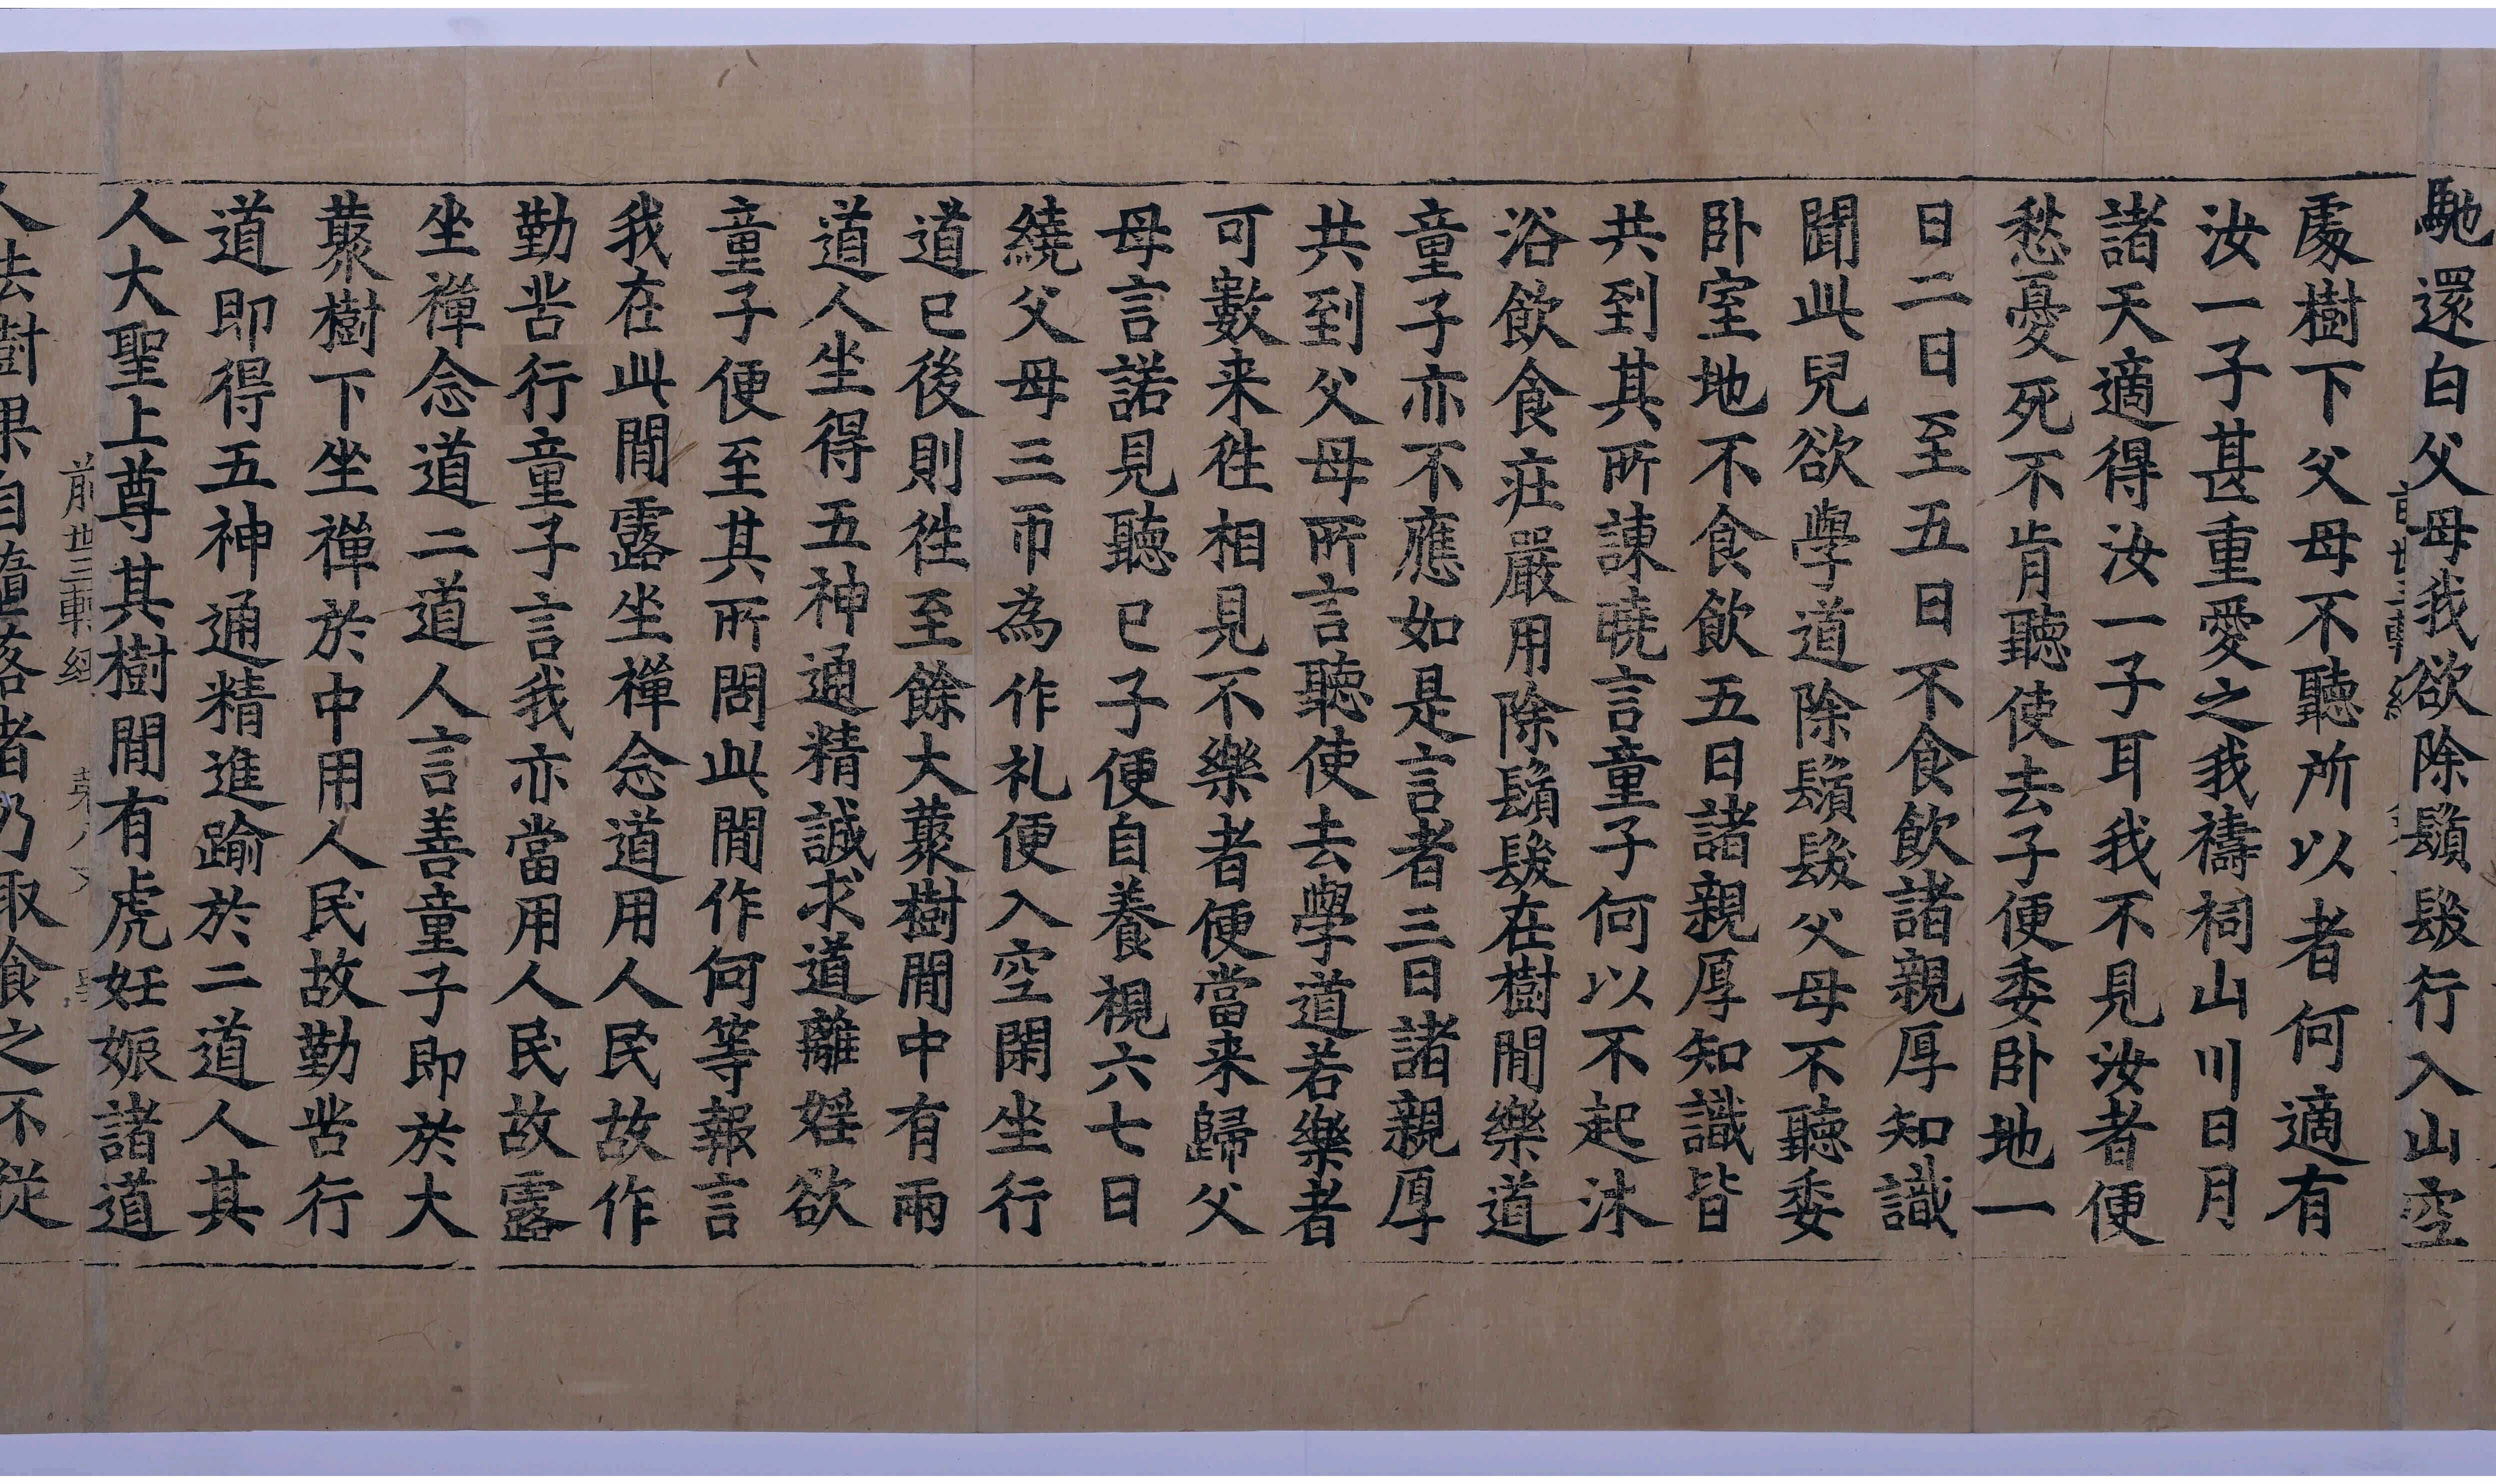 馳還白父母我欲除鬚髮行入山空
處樹下父母不聽所以者何適有
汝一子甚重愛之我禱祠山川日月
諸天適得汝一子耳我不見汝者便
愁憂死不肯聽使去子便委卧地一
日二日至五日不食飲諸親厚知識
聞此兒欲學道除鬚髮父母不聽委
卧室地不食飲五日諸親厚知識皆
共到其所諫曉言童子何以不起沐
浴飲食莊嚴用除鬚髮在樹閒樂道
童子亦不應如是言者三日諸親厚
共到父母所言聽使去學道若樂者
可數来徃相見不樂者便當来歸父
母言諾見聽已子便自養視六七日
繞父母三帀為作礼便入空閑坐行
道已後則徃至餘大藂樹閒中有兩
道人坐得五神通精誠求道離婬欲
童子便至其所問此閒作何等報言
我在此閒露坐禪念道用人民故作
勤苦行童子言我亦當用人民故露
坐禪念道二道人言善童子即於大
藂樹下坐禪於中用人民故勤苦行
道即得五神通精進踰於二道人其
人大聖上尊其樹閒有虎妊娠諸道
前世三轉經
人去樹果自墮落者乃取食之不從